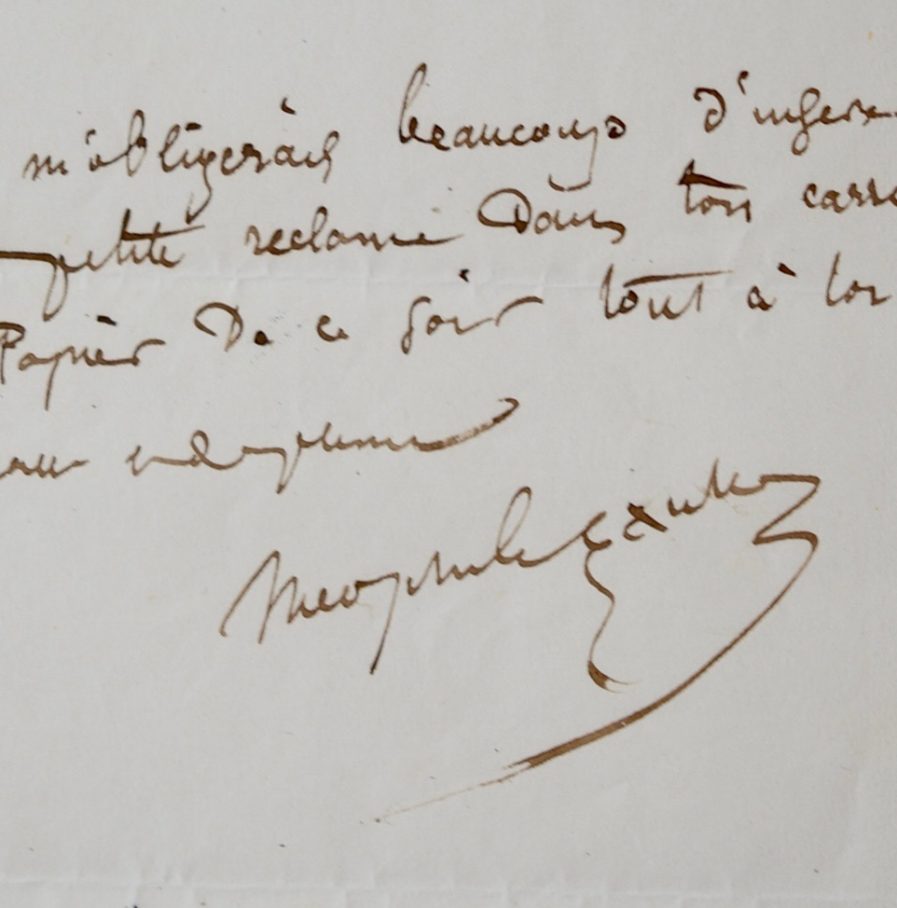 m'obligerais beaucoup d'inserer
petite reclame Dans ton carré
Papier De ce soir tout à toi
theophile gautier